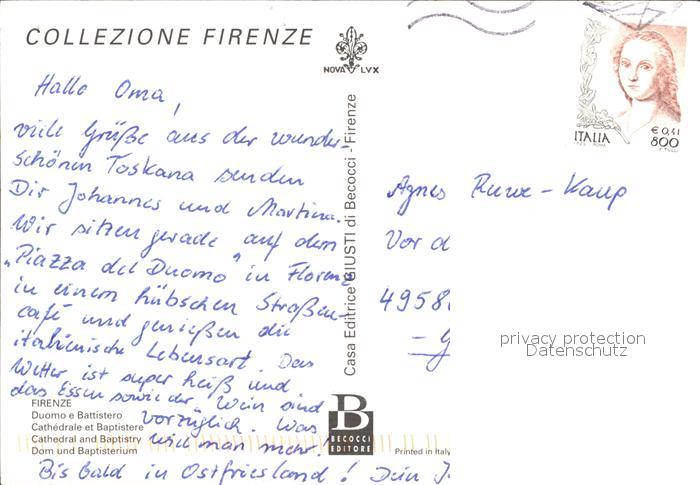 COLLEZIONE FIRENZE
NOVA LVX
Hallo Oma,
viele Grüße aus der wunder-
schönen Toskana senden
Dir Johannes und Martina.
Wir sitzen gerade auf dem
„Piazza del Duomo" in Florenz
in einem hübschen Straßen-
café und genießen die
italienische Lebensart. Das
Wetter ist super heiß und
das Essen sowie der Wein sind
vorzüglich. Was
will man mehr!
Bis bald in Ostfriesland! Dein J
FIRENZE
Duomo e Battistero
Cathédrale et Baptistere
Cathedral and Baptistry
Dom und Baptisterium
Casa Editrice GIUSTI di Becocci - Firenze
B
BECOCCI
EDITORE
Printed in Italy
ITALIA
€ 0,41
800
Agnes Ruwe-Kaup
Vor d
4958
privacy protection
Datenschutz